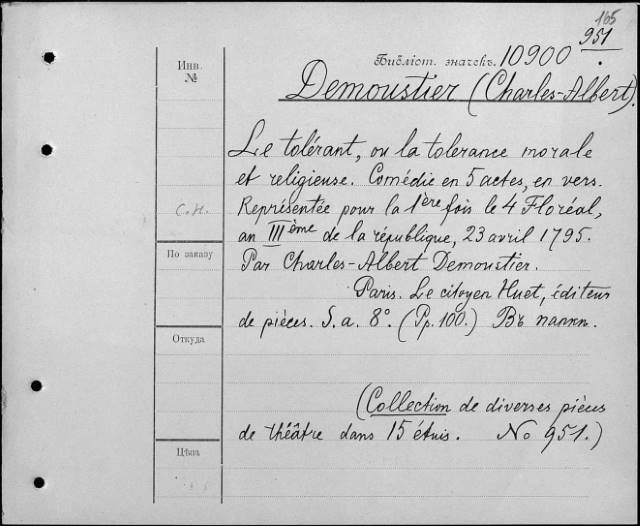 165
951
Инв.
№
Библіот. значекъ. 10900
Demoustier (Charles-Albert).
Le tolérant, ou la tolerance morale
et religieuse. Comédie en 5 actes, en vers.
С.Н.
Représentée pour la 1ère fois le 4 Floréal,
an IIIème de la république, 23 avril 1795.
По заказу
Par Charles-Albert Demoustier.
Paris. Le citoyen Huet, éditeur
de pièces. S. a. 8°. (Pp. 100.) Въ папкѣ.
Откуда
(Collection de diverses pièces
de théâtre dans 15 étuis. No 951.)
Цѣна